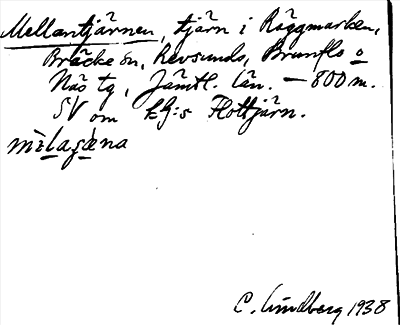 Mellantjärnen, tjärn i Räggmarken,
Bräcke sn, Revsunds, Brunflo o
Näs tg, Jämtl. län. — 800 m.
SV om kg:s Flottjärn.
C. Lindberg 1938